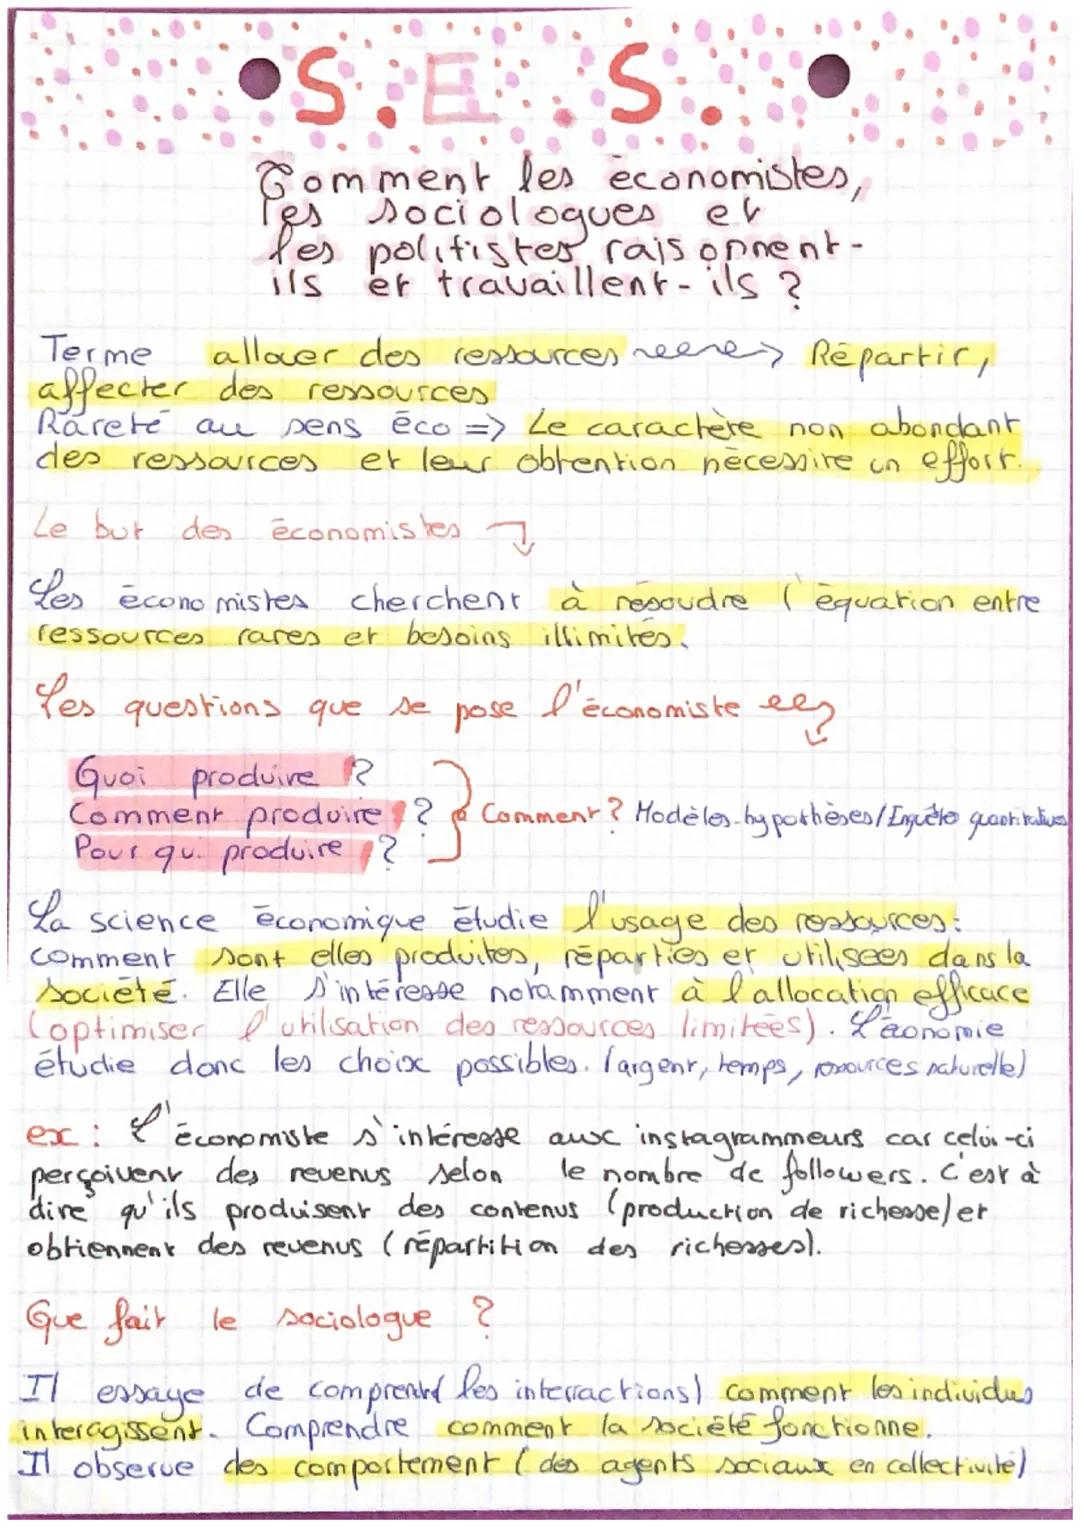 S.E.S.
Comment les économistes,
les sociologues et
les politistes raisonnent-
ils et travaillent-ils ?
Terme allouer des ressources → Répartir,
affecter des ressources
Rareté au sens éco => Le caractère non abondant
des ressources et leur obtention nécessite un effort.
Le but des économistes
Les économistes cherchent à résoudre l'équation entre
ressources rares et besoins illimités.
Les questions que se pose l'économiste
Quoi produire ?
Comment produire ? Comment ? Modèles-hypothèses/Enquêtes quantitatives
Pour qui produire ?
La science économique étudie l'usage des ressources:
comment sont elles produites, réparties et utilisées dans la
société. Elle s'intéresse notamment à l'allocation efficace
(optimiser l'utilisation des ressources limitées). L'économie
étudie donc les choix possibles. (argent, temps, ressources naturelle)
ex : L'économiste s'intéresse aux instagrammeurs car celui-ci
perçoivent des revenus selon le nombre de followers. C'est à
dire qu'ils produisent des contenus (production de richesse) et
obtiennent des revenus (répartition des richesses).
Que fait le sociologue ?
Il essaye de comprend les interractions) comment les individus
interagissent. Comprendre comment la société fonctionne.
Il observe des comportement (des agents sociaux en collectivité)